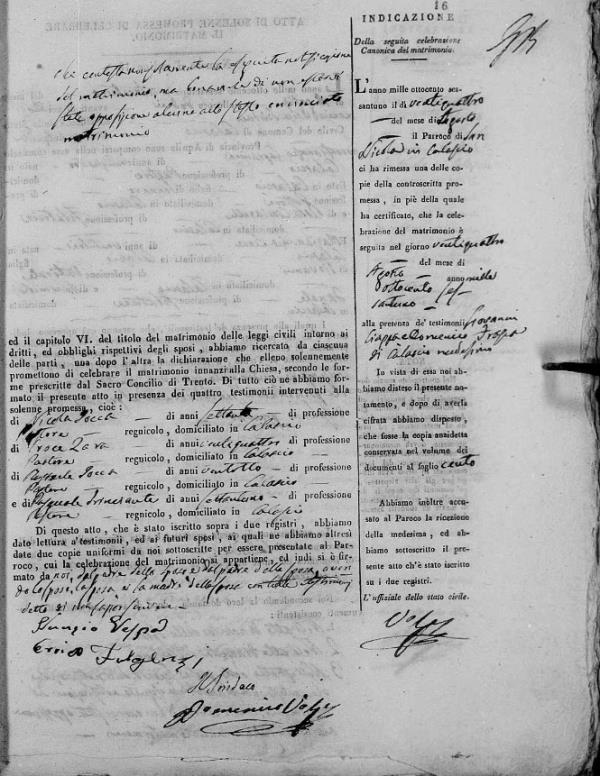 16
INDICAZIONE
Della seguita celebrazione
Canonica del matrimonio.
L'anno mille ottocento ses-
santuno il dì ventiquattro
del mese di Agosto
il Parroco di San
Nicola in Calascio
ci ha rimessa una delle co-
pie della controscritta pro-
messa, in piè della quale
ha certificato, che la cele-
brazione del matrimonio è
seguita nel giorno ventiquattro
del mese di
Agosto anno mille
ottocento ses-
santuno
alla presenza de' testimonj Giovanni
e Domenico
di Calascio medesimo
In vista di essa noi ab-
biamo disteso il presente no-
tamento, e dopo di averla
cifrata abbiamo disposto,
che fosse la copia anzidetta
conservata nel volume dei
documenti al foglio cento
Abbiamo inoltre accu-
sato al Paroco la ricezione
della medesima, ed ab-
biamo sottoscritto il pre-
sente atto ch'è stato iscritto
su i due registri.
L'uffiziale dello stato civile.
che
del matrimonio, ma
opposizione alcuna allo stesso enunciato
matrimonio
ed il capitolo VI. del titolo del matrimonio delle leggi civili intorno ai
dritti, ed obblighi rispettivi degli sposi, abbiamo ricercato da ciascuna
delle parti, una dopo l'altra la dichiarazione che elleno solennemente
promettono di celebrare il matrimonio innanzi alla Chiesa, secondo le for-
me prescritte dal Sacro Concilio di Trento. Di tutto ciò ne abbiamo
formato il presente atto in presenza dei quattro testimonj intervenuti alla
solenne promessa, cioè:
di Nicola di anni settanta di professione
Pastore regnicolo, domiciliato in Calascio
di Croce Zara di anni ventiquattro di professione
Pastore regnicolo, domiciliato in Calascio
di Raffaele di anni ventotto di professione
Pastore regnicolo, domiciliato in Calascio
e di Pasquale di anni settantuno di professione
Pastore regnicolo, domiciliato in Calascio
Di questo atto, che è stato iscritto sopra i due registri, abbiamo
dato lettura a' testimonj, ed ai futuri sposi, ai quali ne abbiamo altresì
date due copie uniformi da noi sottoscritte per essere presentate al Par-
roco, cui la celebrazione del matrimonio si appartiene, ed indi si è fir-
mato da noi, dal padre dello sposo e dal padre della sposa, aven-
do lo sposo, la sposa, e la madre dello sposo con tutti i testimonj
detto di non saper scrivere
Il Sindaco
Domenico